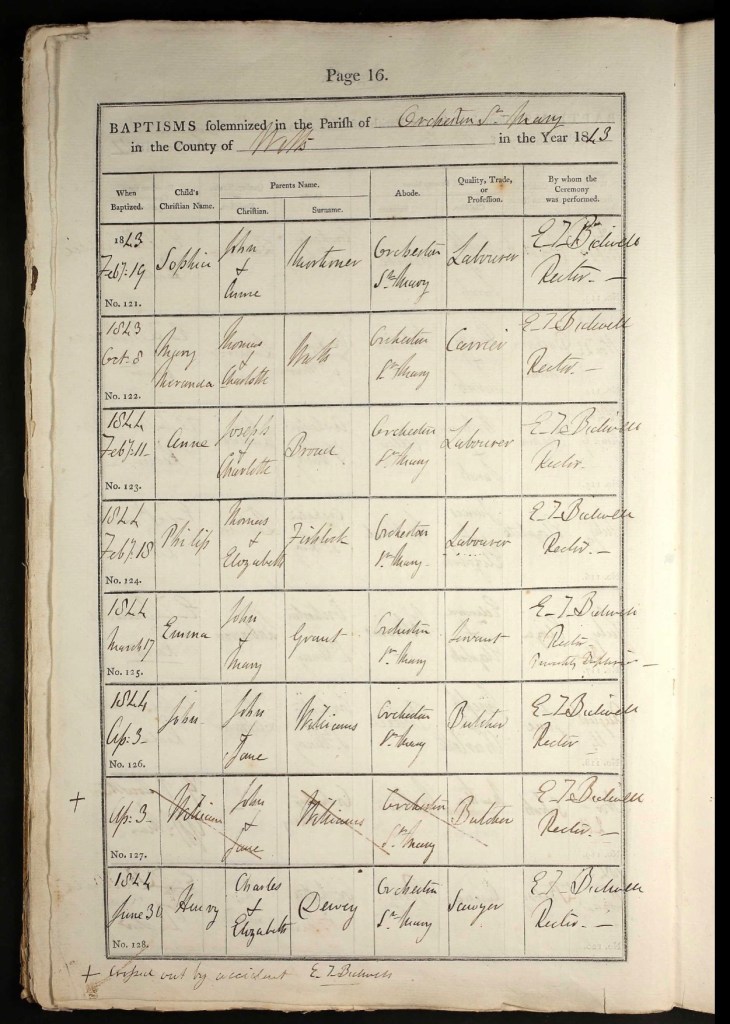 Page 16.
BAPTISMS solemnized in the Parish of Orcheston St. Mary
in the County of Wilts in the Year 1843
When Baptized. Child's Christian Name. Parents Name. Abode. Quality, Trade, or Profession. By whom the Ceremony was performed.
Christian. Surname.
1843
Feby. 19 Sophia John & Anne Mortimer Orcheston St. Mary Labourer E. T. Bidwell Rector. —
No. 121.
1843
Oct. 8 Mary Miranda Thomas & Charlotte Orcheston St. Mary Carrier E. T. Bidwell Rector. —
No. 122.
1844
Feby. 11 Anne Joseph & Charlotte Orcheston St. Mary Labourer E. T. Bidwell Rector.
No. 123.
1844
Feby. 18 Philip Thomas & Elizabeth Fishlock Orcheston St. Mary Labourer E. T. Bidwell Rector. —
No. 124.
1844
March 17 Emma John & Mary Grant Orcheston St. Mary Servant E. T. Bidwell Rector
No. 125.
1844
Ap: 3 John John & Jane Williams Orcheston St. Mary Butcher E. T. Bidwell Rector
No. 126.
+ Ap: 3 William John & Jane Williams Orcheston St. Mary Butcher E. T. Bidwell Rector. —
No. 127.
1844
June 30 Henry Charles & Elizabeth Dewey Orcheston St. Mary Sawyer E. T. Bidwell Rector. —
No. 128.
+ crossed out by accident E. T. Bidwell